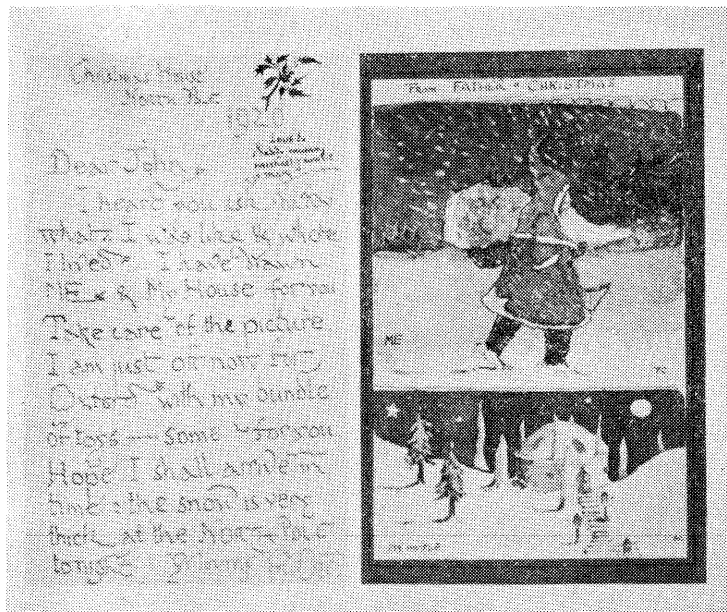 Christmas House
North Pole
1920
Love to
daddy, mummy
michael & auntie
mary
Dear John
I heard you ask daddy
what I was like & where
I lived. I have drawn
ME & My House for you
Take care of the picture
I am just off now for
Oxford with my bundle
of toys — some for you
Hope I shall arrive in
time: the snow is very
thick at the NORTH POLE
tonight
FROM FATHER CHRISTMAS
ME